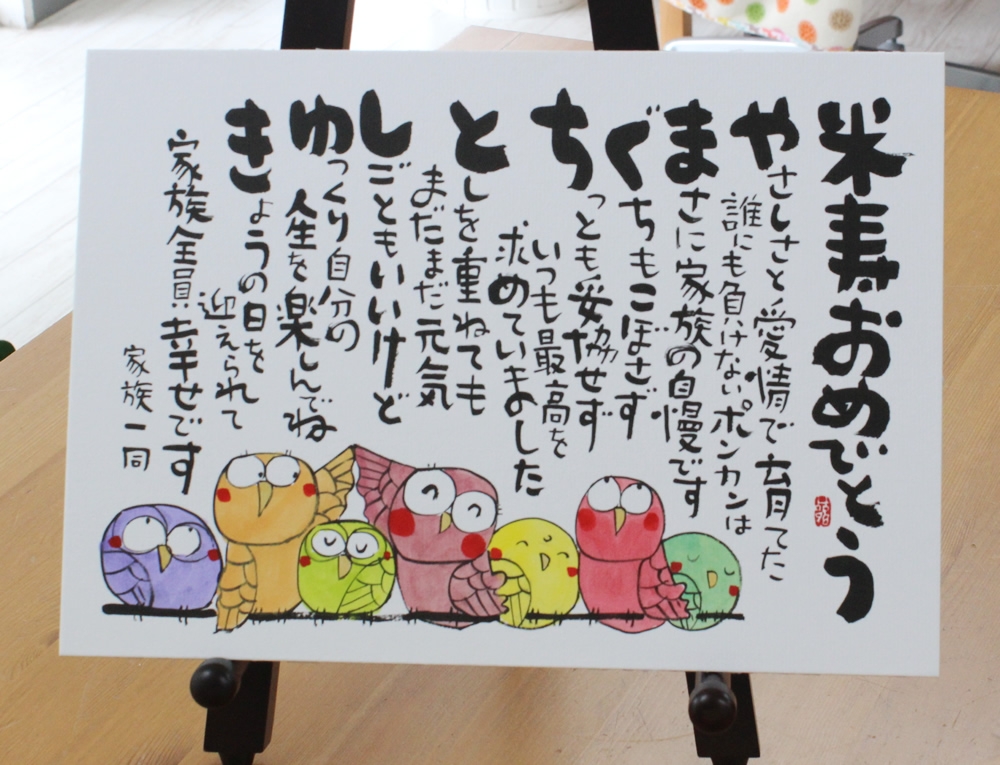 米寿おめでとう
やさしさと愛情で育てた
誰にも負けないポンカンは
まさに家族の自慢です
ぐちもこぼさず
ちっとも妥協せず
いつも最高を
求めていました
としを重ねても
まだまだ元気
しごともいいけど
ゆっくり自分の
人生を楽しんでね
きょうの日を
迎えられて
家族全員幸せです
家族一同